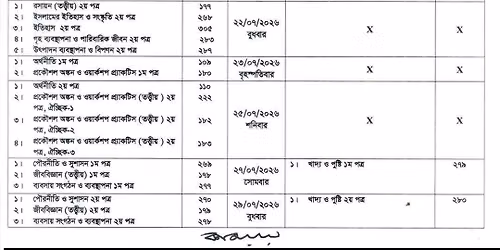 ১। রসায়ন (তত্ত্বীয়) ২য় পত্র ১৭৭
২। ইসলামের ইতিহাস ও সংস্কৃতি ২য় পত্র ২৬৮ ২২/০৭/২০২৬ X X
৩। ইতিহাস ২য় পত্র ৩০৫ বুধবার
৪। গৃহ ব্যবস্থাপনা ও পারিবারিক জীবন ২য় পত্র ২৮৩
৫। উৎপাদন ব্যবস্থাপনা ও বিপণন ২য় পত্র ২৮৭
১। অর্থনীতি ১ম পত্র ১০৯ ২৩/০৭/২০২৬ X X
২। প্রকৌশল অঙ্কন ও ওয়ার্কশপ প্র্যাকটিস ১ম পত্র ১৮০ বৃহস্পতিবার
১। অর্থনীতি ২য় পত্র ১১০
২। প্রকৌশল অঙ্কন ও ওয়ার্কশপ প্র্যাকটিস (তত্ত্বীয়) ২য় ২২২
পত্র, ঐচ্ছিক-১ ২৫/০৭/২০২৬
৩। প্রকৌশল অঙ্কন ও ওয়ার্কশপ প্র্যাকটিস (তত্ত্বীয়) ২য় ১৮২ শনিবার X X
পত্র, ঐচ্ছিক-২
৪। প্রকৌশল অঙ্কন ও ওয়ার্কশপ প্র্যাকটিস (তত্ত্বীয়) ২য় ১৮৩
পত্র, ঐচ্ছিক-৩
১। পৌরনীতি ও সুশাসন ১ম পত্র ২৬৯ ২৭/০৭/২০২৬ ১। খাদ্য ও পুষ্টি ১ম পত্র ২৭৯
২। জীববিজ্ঞান (তত্ত্বীয়) ১ম পত্র ১৭৮ সোমবার
৩। ব্যবসায় সংগঠন ও ব্যবস্থাপনা ১ম পত্র ২৭৭
১। পৌরনীতি ও সুশাসন ২য় পত্র ২৭০ ২৯/০৭/২০২৬ ১। খাদ্য ও পুষ্টি ২য় পত্র ২৮০
২। জীববিজ্ঞান (তত্ত্বীয়) ২য় পত্র ১৭৯ বুধবার
৩। ব্যবসায় সংগঠন ও ব্যবস্থাপনা ২য় পত্র ২৭৮